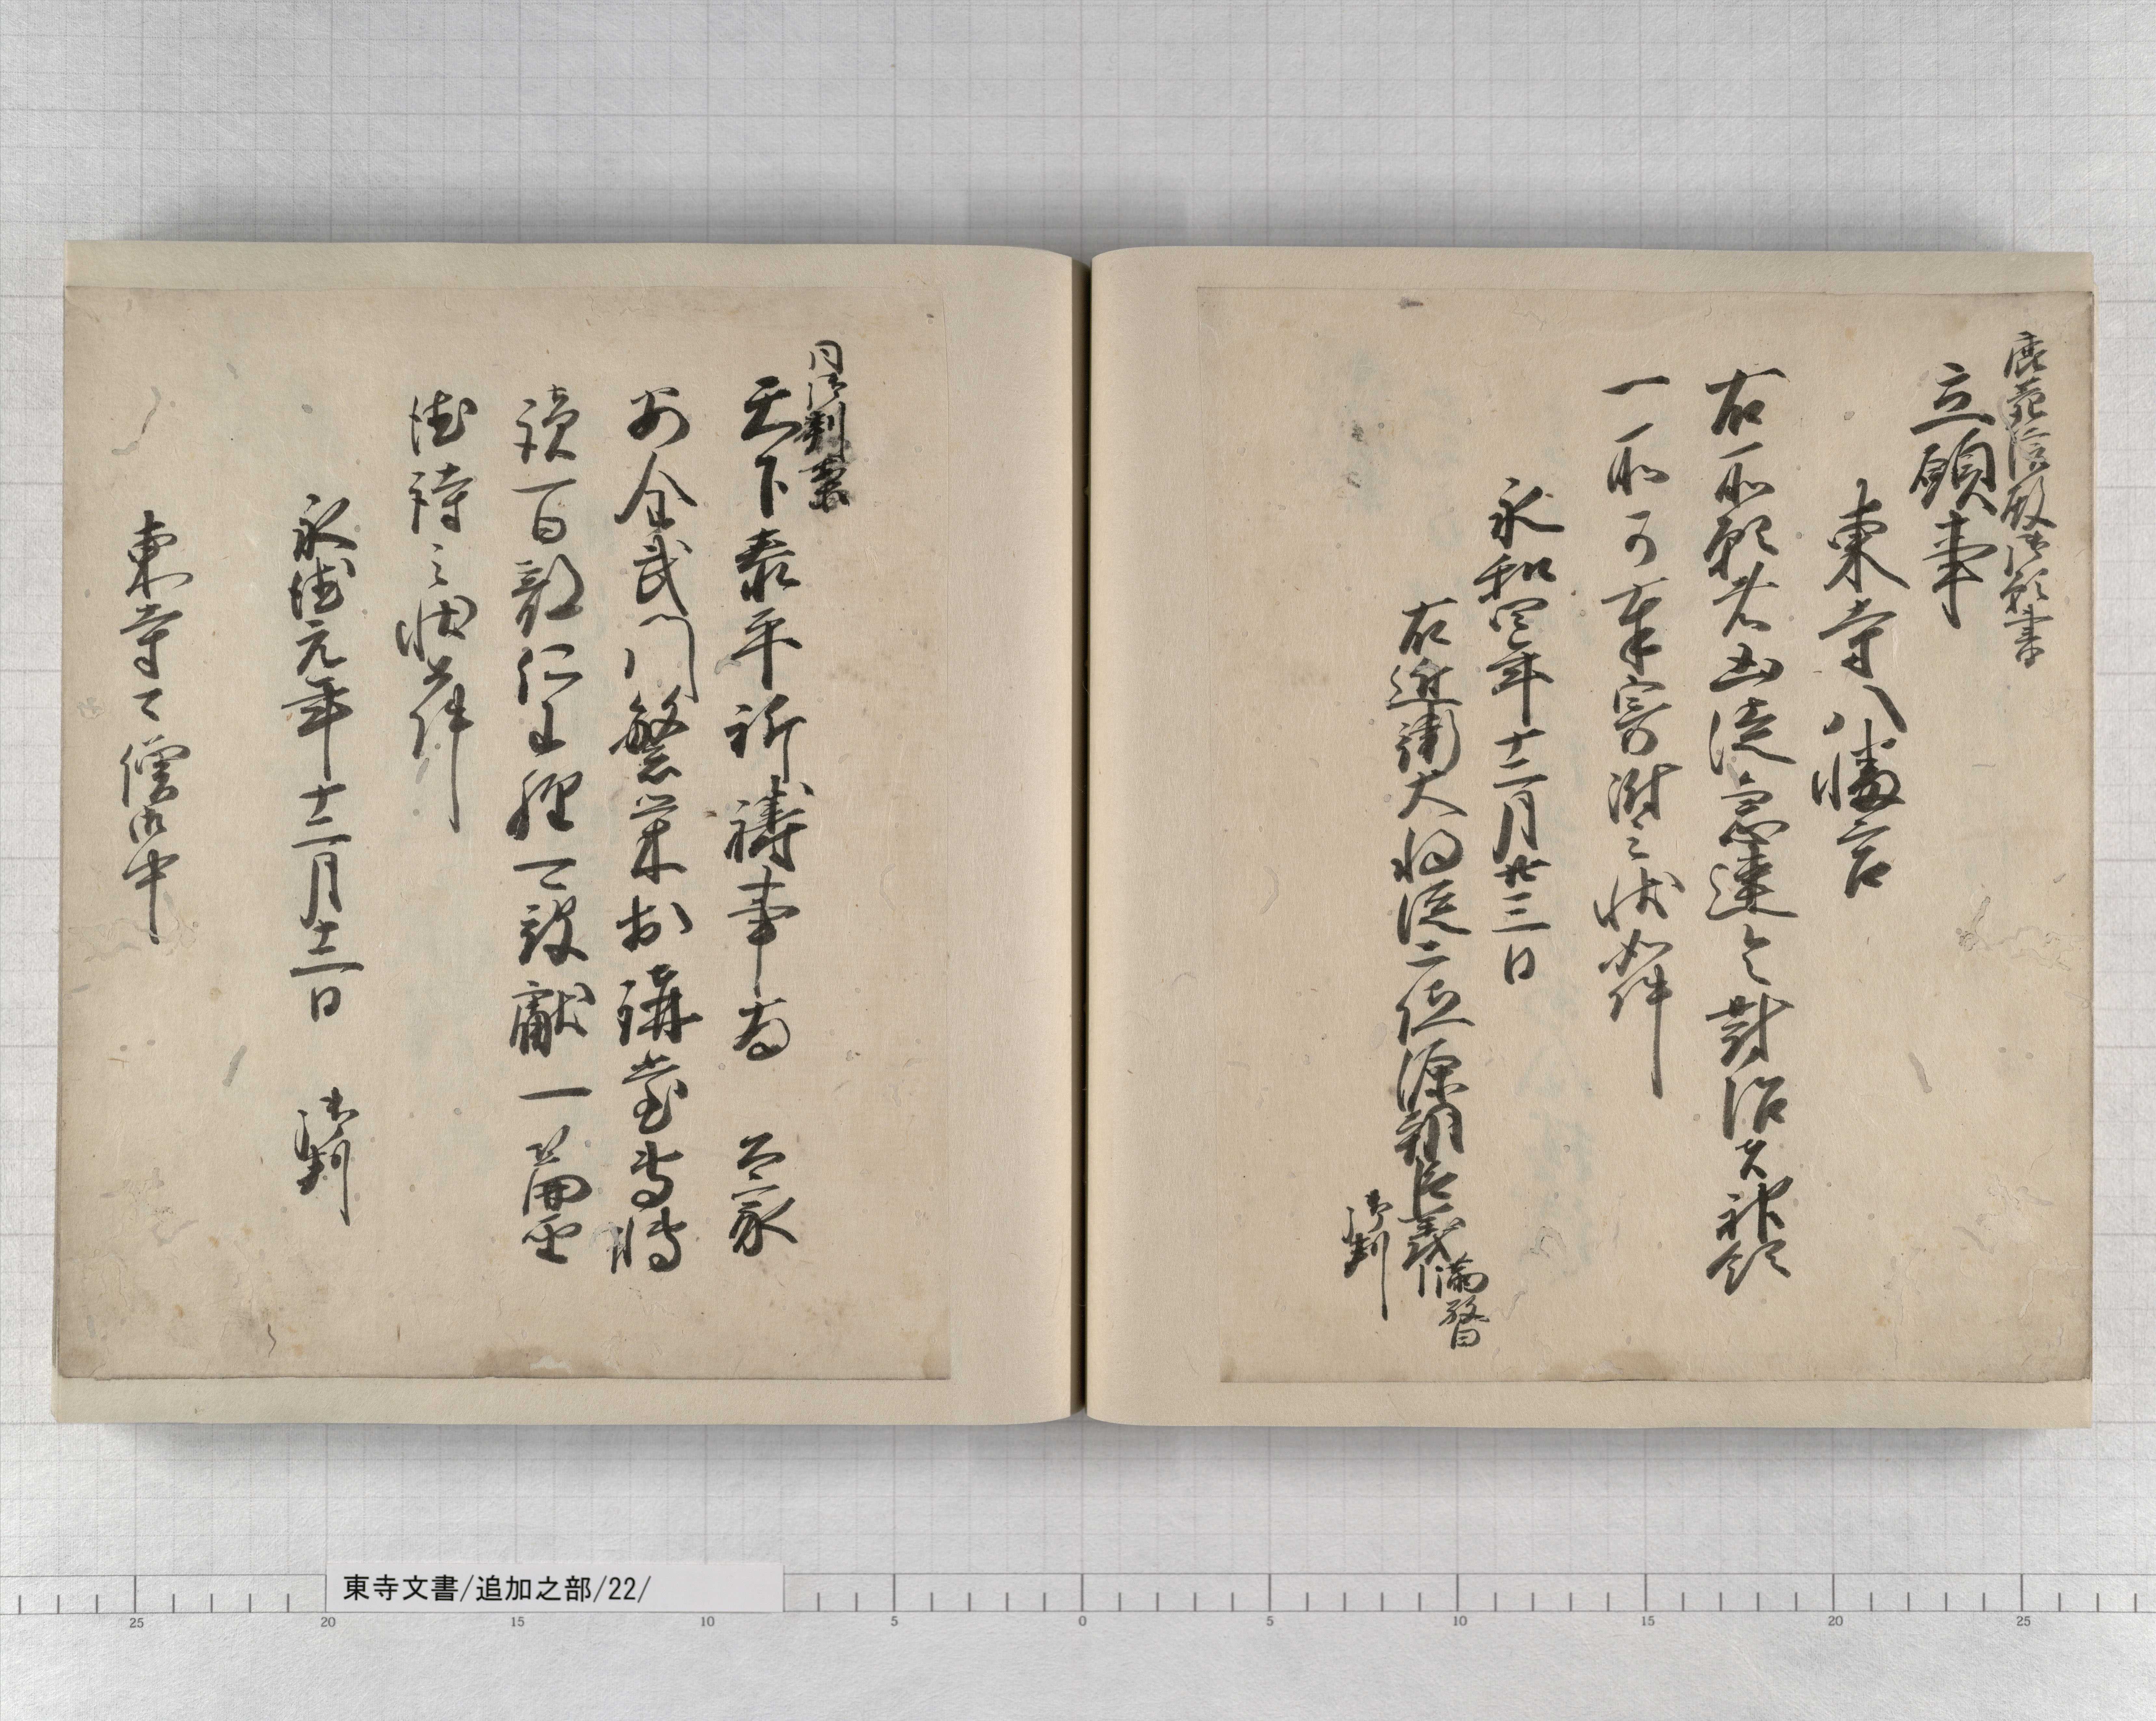 鹿苑院殿御願書
立願事
東寺八幡宮
右所願者凶徒急速令対治者神領
一所可奉寄附之状如件
永和四年十二月廿三日
右近衛大将従二位源朝臣義満 敬白
御判
同御判案
天下泰平祈祷事為公家
安全武門繁栄於講堂専転
読百部仁王経可致献一篇霊
徳祷之状如件
永徳元年十二月十二日 御判
東寺々僧御中
東寺文書/追加之部/22/
25 20 15 10 5 0 5 10 15 20 25